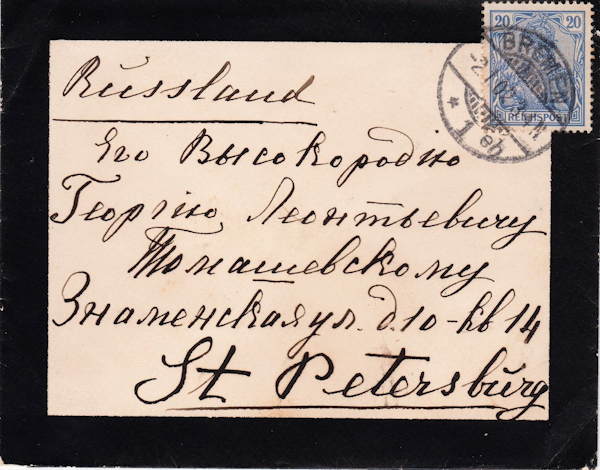 20 20
REICHSPOST
BREMEN
* 1 eb
Russland
Его Высокородию
Георгію Леонтьевичу
Томашевскому
Знаменская ул. д. 10 - кв 14
St Petersburg